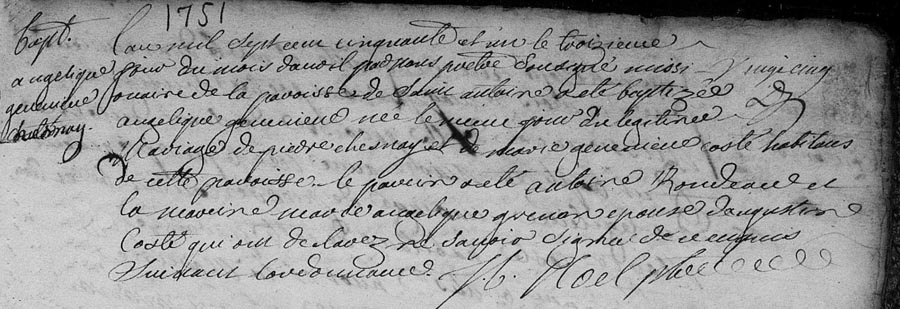 1751
bapt.
angelique
genevieve
chesnay.
Lan mil sept cent cinquante et un le troizieme
jour du mois davril par nous pretre sousigné missi
onaire de la paroisse de saint antoine a été baptizée
angelique genevieve née le meme jour du legitime
mariage de piedre chesnay et de marie genevieve costé habitans
de cette paroisse. le parein a été antoine Rondeau et
la mareine marie angelique grenon epouse daugustin
Costé qui ont declarez ne savoir signer de ce enquis
suivant lordonnance.